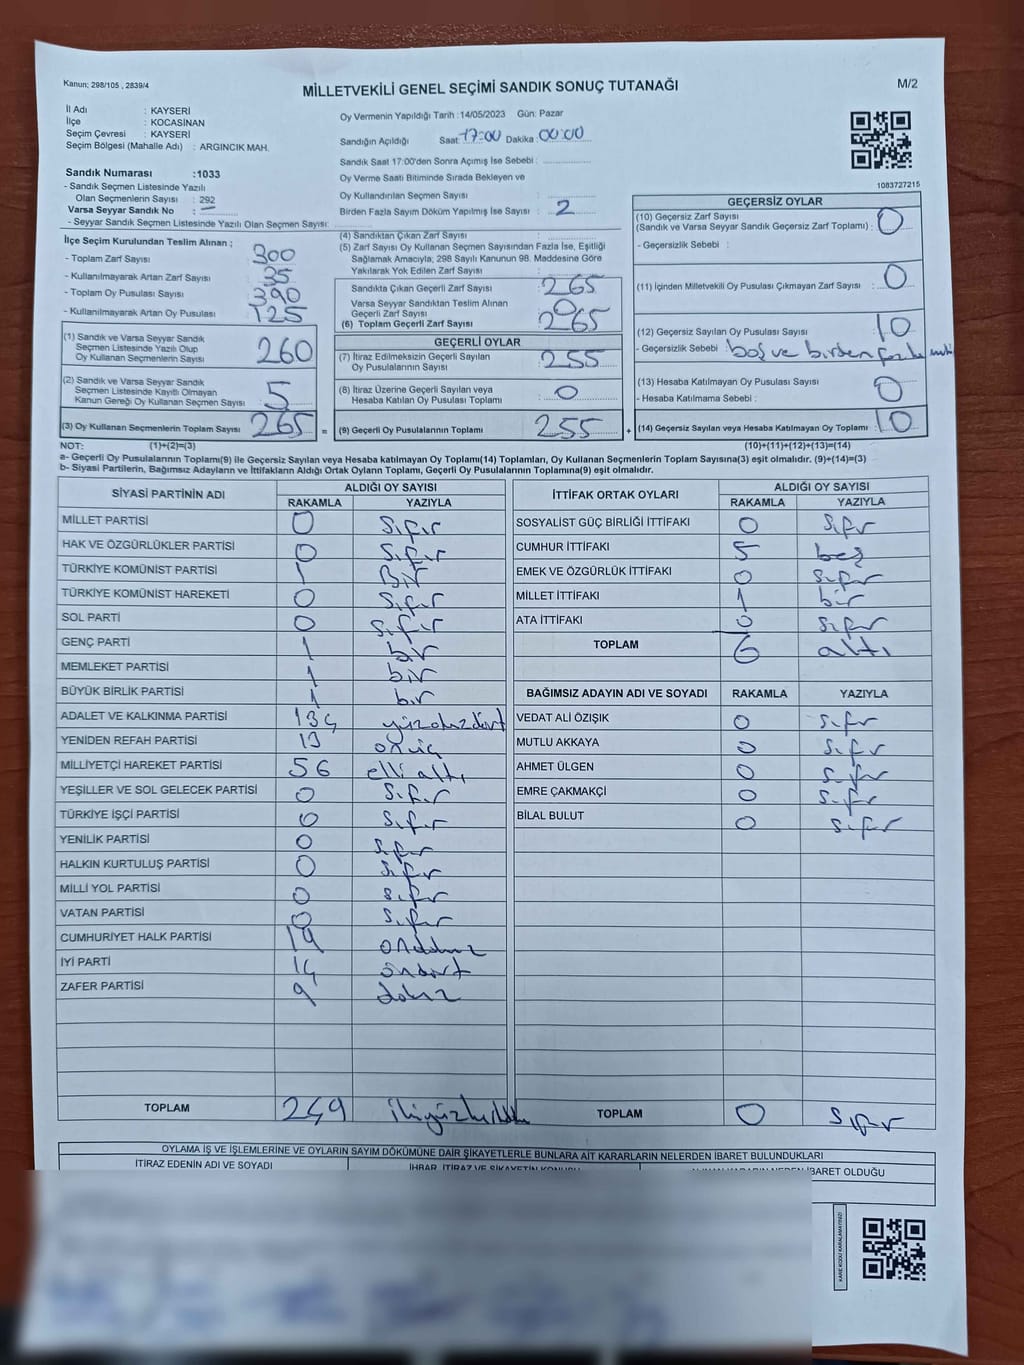 Kanun; 298/105 , 2839/4
MİLLETVEKİLİ GENEL SEÇİMİ SANDIK SONUÇ TUTANAĞI
M/2
İl Adı : KAYSERİ
İlçe : KOCASİNAN
Seçim Çevresi : KAYSERİ
Seçim Bölgesi (Mahalle Adı) : ARGINCIK MAH.
Oy Vermenin Yapıldığı Tarih :14/05/2023 Gün: Pazar
Sandığın Açıldığı Saat: 17:00 Dakika 00:00
Sandık Saat 17:00'den Sonra Açımış İse Sebebi :
Oy Verme Saati Bitiminde Sırada Bekleyen ve
Oy Kullandırılan Seçmen Sayısı :
Birden Fazla Sayım Döküm Yapılmış İse Sayısı : 2
Sandık Numarası :1033
- Sandık Seçmen Listesinde Yazılı
Olan Seçmenlerin Sayısı : 292
Varsa Seyyar Sandık No :
- Seyyar Sandık Seçmen Listesinde Yazılı Olan Seçmen Sayısı:
1083727215
İlçe Seçim Kurulundan Teslim Alınan ;
- Toplam Zarf Sayısı : 300
- Kullanılmayarak Artan Zarf Sayısı : 35
- Toplam Oy Pusulası Sayısı : 390
- Kullanılmayarak Artan Oy Pusulası : 125
(1) Sandık ve Varsa Seyyar Sandık
Seçmen Listesinde Yazılı Olup
Oy Kullanan Seçmenlerin Sayısı : 260
(2) Sandık ve Varsa Seyyar Sandık
Seçmen Listesinde Kayıtlı Olmayan
Kanun Gereği Oy Kullanan Seçmen Sayısı : 5
(3) Oy Kullanan Seçmenlerin Toplam Sayısı : 265 =
(4) Sandıktan Çıkan Zarf Sayısı :
(5) Zarf Sayısı Oy Kullanan Seçmen Sayısından Fazla İse, Eşitliği
Sağlamak Amacıyla; 298 Sayılı Kanunun 98. Maddesine Göre
Yakılarak Yok Edilen Zarf Sayısı :
Sandıkta Çıkan Geçerli Zarf Sayısı : 265
Varsa Seyyar Sandıktan Teslim Alınan
Geçerli Zarf Sayısı : 0
(6) Toplam Geçerli Zarf Sayısı : 265
GEÇERLİ OYLAR
(7) İtiraz Edilmeksizin Geçerli Sayılan
Oy Pusulalarının Sayısı : 255
(8) İtiraz Üzerine Geçerli Sayılan veya
Hesaba Katılan Oy Pusulası Toplamı : 0
(9) Geçerli Oy Pusulalarının Toplamı : 255 +
GEÇERSİZ OYLAR
(10) Geçersiz Zarf Sayısı
(Sandık ve Varsa Seyyar Sandık Geçersiz Zarf Toplamı) : 0
- Geçersizlik Sebebi :
(11) İçinden Milletvekili Oy Pusulası Çıkmayan Zarf Sayısı : 0
(12) Geçersiz Sayılan Oy Pusulası Sayısı : 10
- Geçersizlik Sebebi : boş ve birden fazla
(13) Hesaba Katılmayan Oy Pusulası Sayısı : 0
- Hesaba Katılmama Sebebi :
(14) Geçersiz Sayılan veya Hesaba Katılmayan Oy Toplamı : 10
NOT: (1)+(2)=(3) (10)+(11)+(12)+(13)=(14)
a- Geçerli Oy Pusulalarının Toplamı(9) ile Geçersiz Sayılan veya Hesaba katılmayan Oy Toplamı(14) Toplamları, Oy Kullanan Seçmenlerin Toplam Sayısına(3) eşit olmalıdır. (9)+(14)=(3)
b- Siyasi Partilerin, Bağımsız Adayların ve İttifakların Aldığı Ortak Oyların Toplamı, Geçerli Oy Pusulalarının Toplamına(9) eşit olmalıdır.
SİYASİ PARTİNİN ADI ALDIĞI OY SAYISI
RAKAMLA YAZIYLA
MİLLET PARTİSİ 0 sıfır
HAK VE ÖZGÜRLÜKLER PARTİSİ 0 sıfır
TÜRKİYE KOMÜNİST PARTİSİ 1 Bir
TÜRKİYE KOMÜNİST HAREKETİ 0 sıfır
SOL PARTİ 0 sıfır
GENÇ PARTİ 1 bir
MEMLEKET PARTİSİ 1 bir
BÜYÜK BİRLİK PARTİSİ 1 bir
ADALET VE KALKINMA PARTİSİ 134 yüzotuzdört
YENİDEN REFAH PARTİSİ 13 onüç
MİLLİYETÇİ HAREKET PARTİSİ 56 elli altı
YEŞİLLER VE SOL GELECEK PARTİSİ 0 sıfır
TÜRKİYE İŞÇİ PARTİSİ 0 sıfır
YENİLİK PARTİSİ 0 sıfır
HALKIN KURTULUŞ PARTİSİ 0 sıfır
MİLLİ YOL PARTİSİ 0 sıfır
VATAN PARTİSİ 0 sıfır
CUMHURİYET HALK PARTİSİ 19 ondokuz
İYİ PARTİ 14 ondört
ZAFER PARTİSİ 9 dokuz
TOPLAM 249
İTTİFAK ORTAK OYLARI ALDIĞI OY SAYISI
RAKAMLA YAZIYLA
SOSYALİST GÜÇ BİRLİĞİ İTTİFAKI 0 sıfır
CUMHUR İTTİFAKI 5 beş
EMEK VE ÖZGÜRLÜK İTTİFAKI 0 sıfır
MİLLET İTTİFAKI 1 bir
ATA İTTİFAKI 0 sıfır
TOPLAM 6 altı
BAĞIMSIZ ADAYIN ADI VE SOYADI RAKAMLA YAZIYLA
VEDAT ALİ ÖZIŞIK 0 sıfır
MUTLU AKKAYA 0 sıfır
AHMET ÜLGEN 0 sıfır
EMRE ÇAKMAKÇİ 0 sıfır
BİLAL BULUT 0 sıfır
TOPLAM 0 sıfır
OYLAMA İŞ VE İŞLEMLERİNE VE OYLARIN SAYIM DÖKÜMÜNE DAİR ŞİKAYETLERLE BUNLARA AİT KARARLARIN NELERDEN İBARET BULUNDUKLARI
İTİRAZ EDENİN ADI VE SOYADI İHBAR, İTİRAZ VE ŞİKAYETİN KONUSU ALINAN KARARIN NEDEN İBARET OLDUĞU
KARE KODU KARALAMAYINIZ!